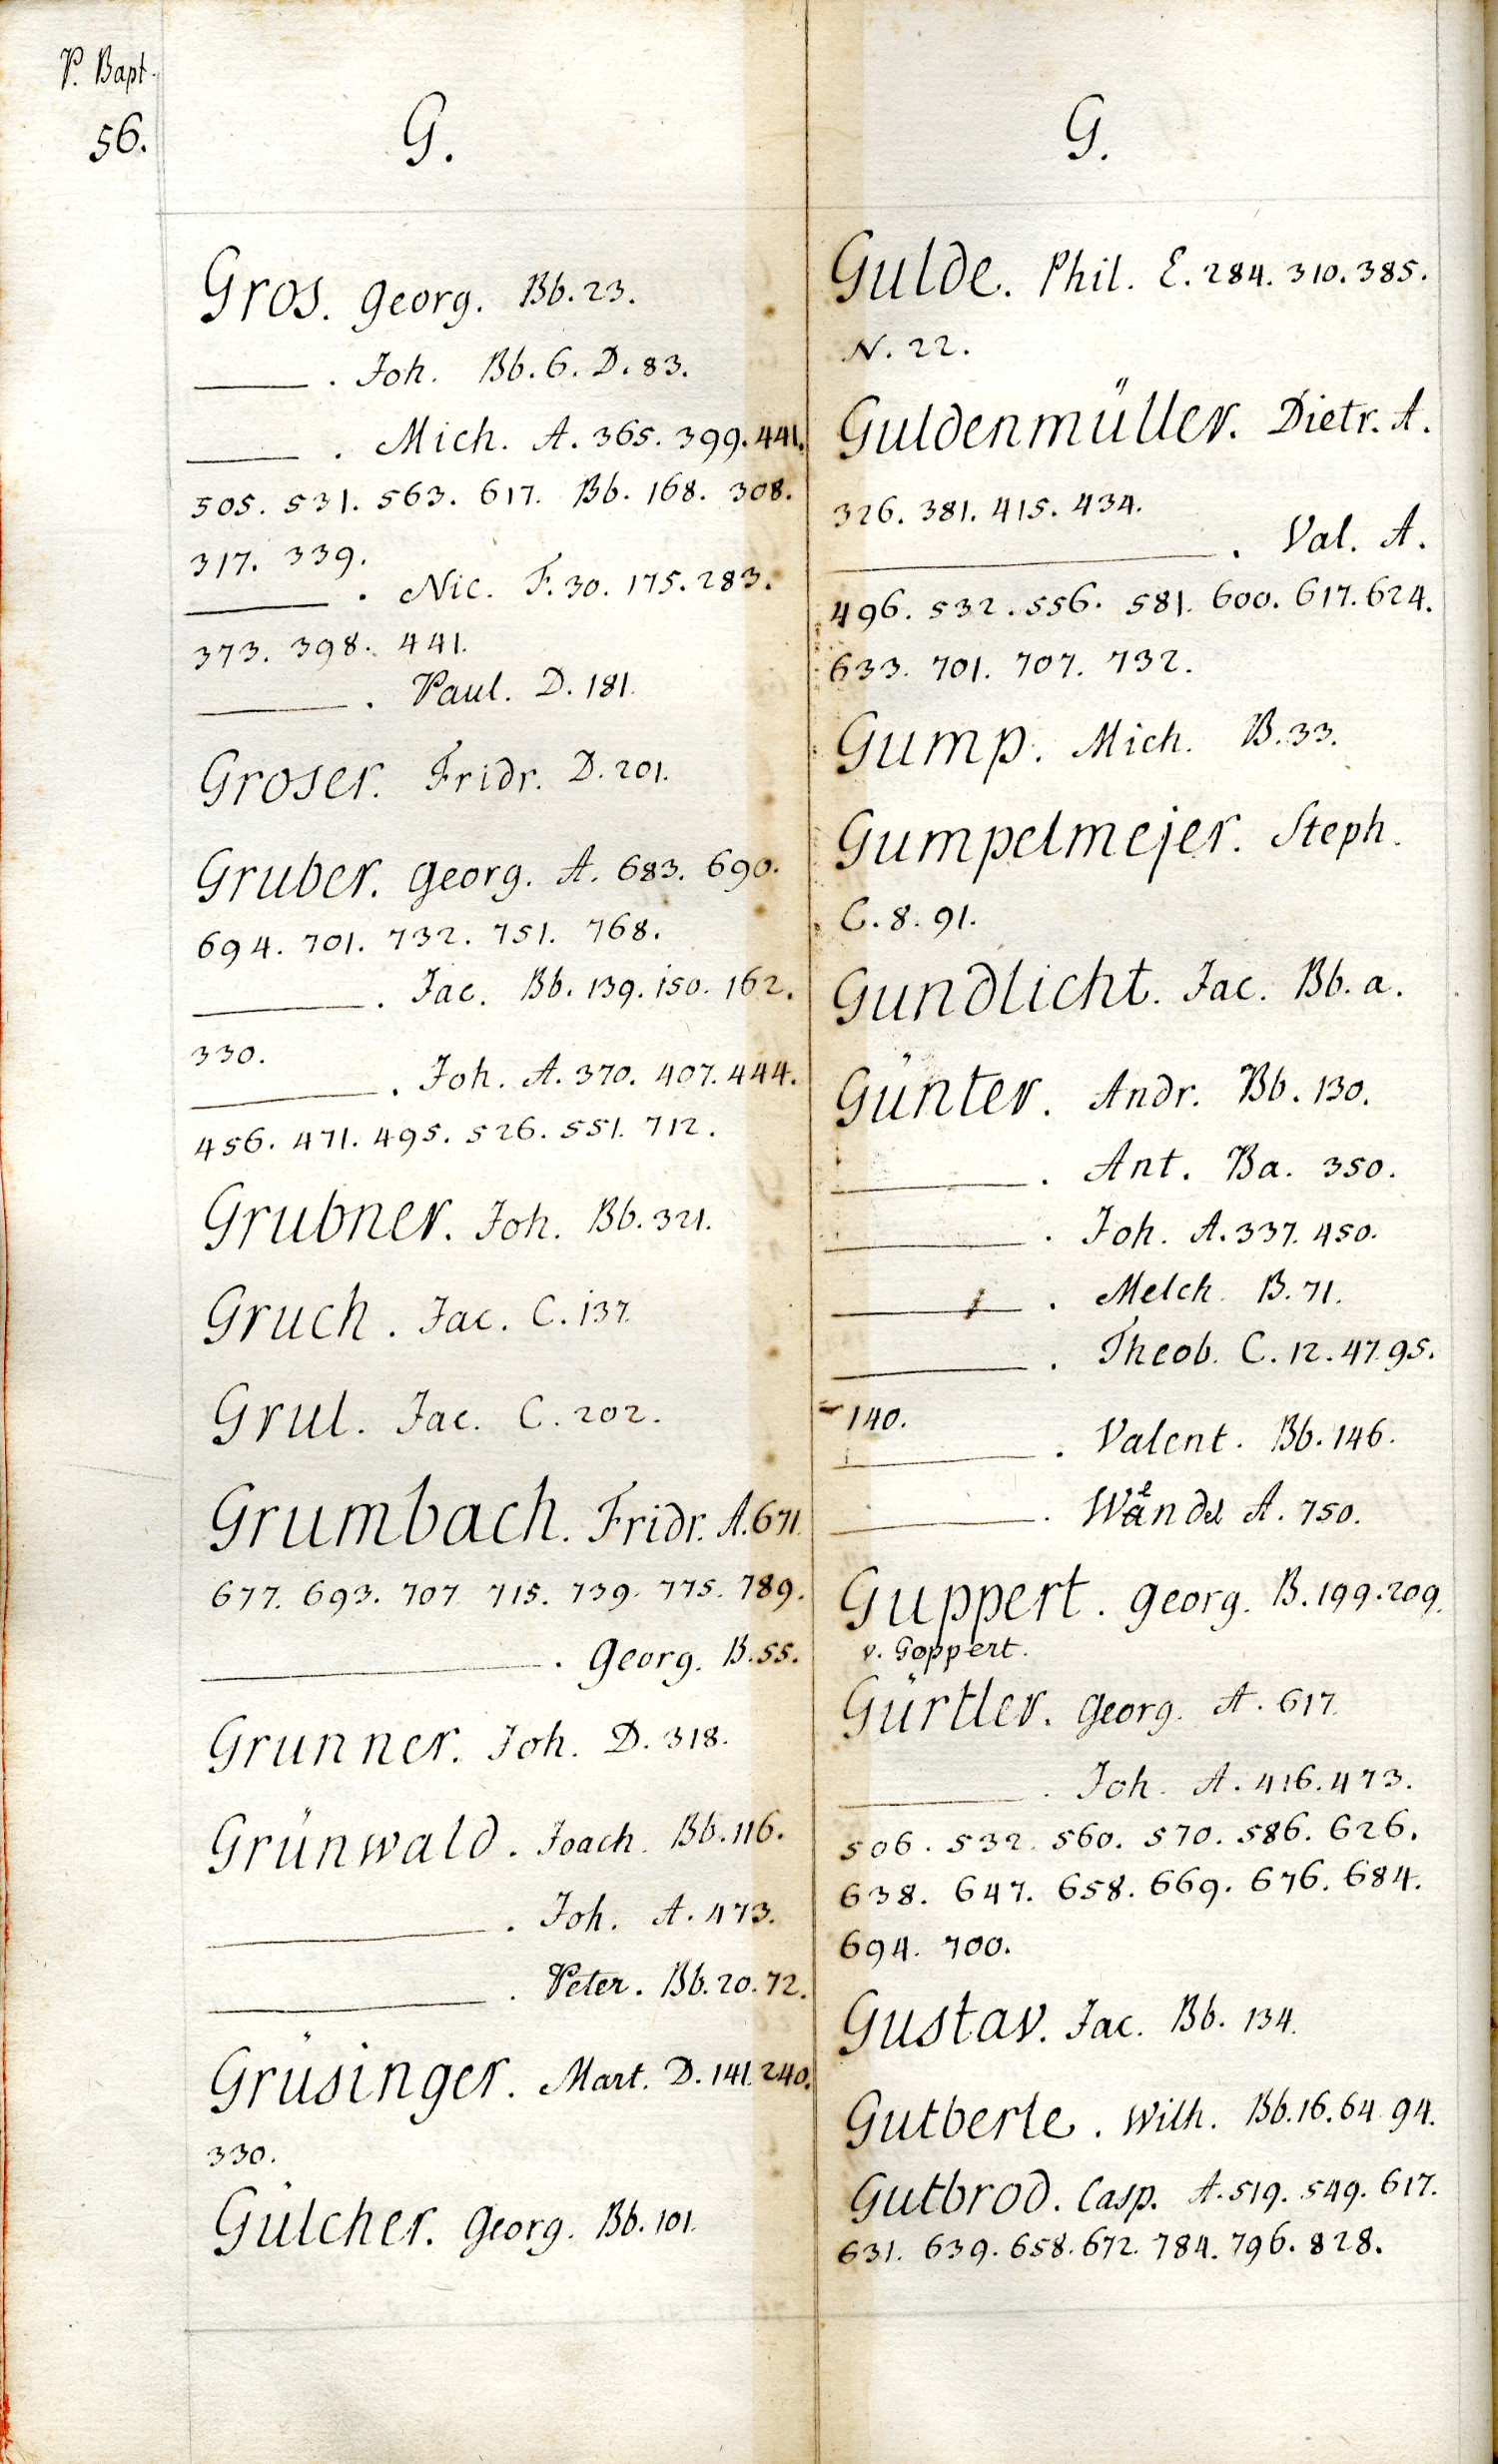 P. Bapt.
56.
G.
Gros. Georg. Bb. 23.
——. Joh. Bb. 6. D. 83.
——. Mich. A. 365. 399. 441.
505. 531. 563. 617. Bb. 168. 308.
317. 339.
——. Nic. F. 30. 175. 283.
373. 398. 441.
——. Paul. D. 181.
Groser. Fridr. D. 201.
Gruber. Georg. A. 683. 690.
694. 701. 732. 751. 768.
——. Jac. Bb. 139. 150. 162.
330.
——. Joh. A. 370. 407. 444.
456. 471. 495. 526. 551. 712.
Grubner. Joh. Bb. 321.
Gruch. Jac. C. 137.
Grul. Jac. C. 202.
Grumbach. Fridr. A. 671.
677. 693. 707. 715. 739. 775. 789.
——. Georg. B. 55.
Grunner. Joh. D. 318.
Grünwald. Joach. Bb. 116.
——. Joh. A. 473.
——. Peter. Bb. 20. 72.
Grüsinger. Mart. D. 141. 240.
330.
Gülcher. Georg. Bb. 101.
G.
Gulde. Phil. E. 284. 310. 385.
N. 22.
Guldenmüller. Dietr. A.
326. 381. 415. 434.
——. Val. A.
496. 532. 556. 581. 600. 617. 624.
633. 701. 707. 732.
Gump. Mich. B. 33.
Gumpelmejer. Steph.
C. 8. 91.
Gundlicht. Jac. Bb. a.
Günter. Andr. Bb. 130.
——. Ant. Ba. 350.
——. Joh. A. 337. 450.
——. Melch. B. 71.
——. Theob. C. 12. 47. 95.
140.
——. Valent. Bb. 146.
——. Wändel A. 750.
Guppert. Georg. B. 199. 209.
v. Goppert.
Gürtler. Georg. A. 617.
——. Joh. A. 416. 473.
506. 532. 560. 570. 586. 626.
638. 647. 658. 669. 676. 684.
694. 700.
Gustav. Jac. Bb. 134.
Gutberle. Wilh. Bb. 16. 64. 94.
Gutbrod. Casp. A. 519. 549. 617.
631. 639. 658. 672. 784. 796. 828.